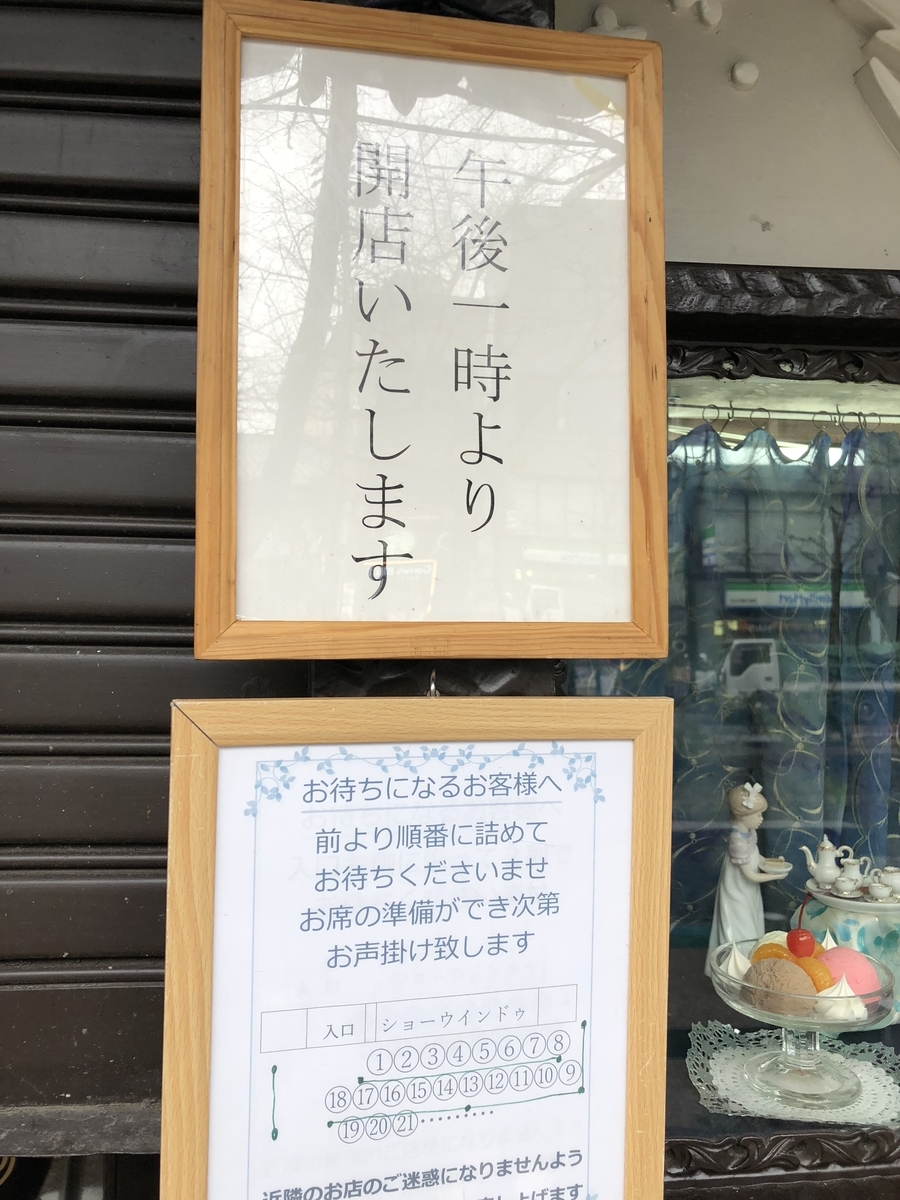 午後一時より
開店いたします
お待ちになるお客様へ
前より順番に詰めて
お待ちくださいませ
お席の準備ができ次第
お声掛け致します
入口 ショーウインドゥ
①②③④⑤⑥⑦⑧
⑱⑰⑯⑮⑭⑬⑫⑪⑩⑨
⑲⑳㉑………
近隣のお店のご迷惑になりませんよう
し上げます